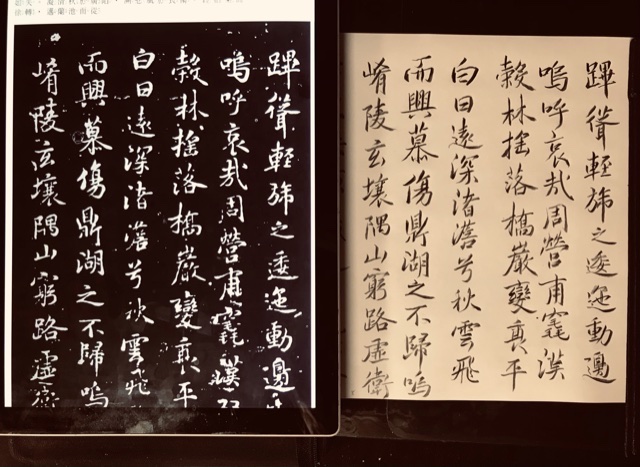 蹕聳輕旆之逶迤動邊
嗚呼哀哉周營甫竁漢
穀林搖落橋巖變衰平
白日遠深渚蒼兮秋雲飛
而興慕傷鼎湖之不歸嗚
崤陵玄壤隅山窮路虛衛
蹕聳輕旆之逶迤動邊
嗚呼哀哉周營甫竁漢
穀林搖落橋巖變衰平
白日遠深渚蒼兮秋雲飛
而興慕傷鼎湖之不歸嗚
崤陵玄壤隅山窮路虛衛